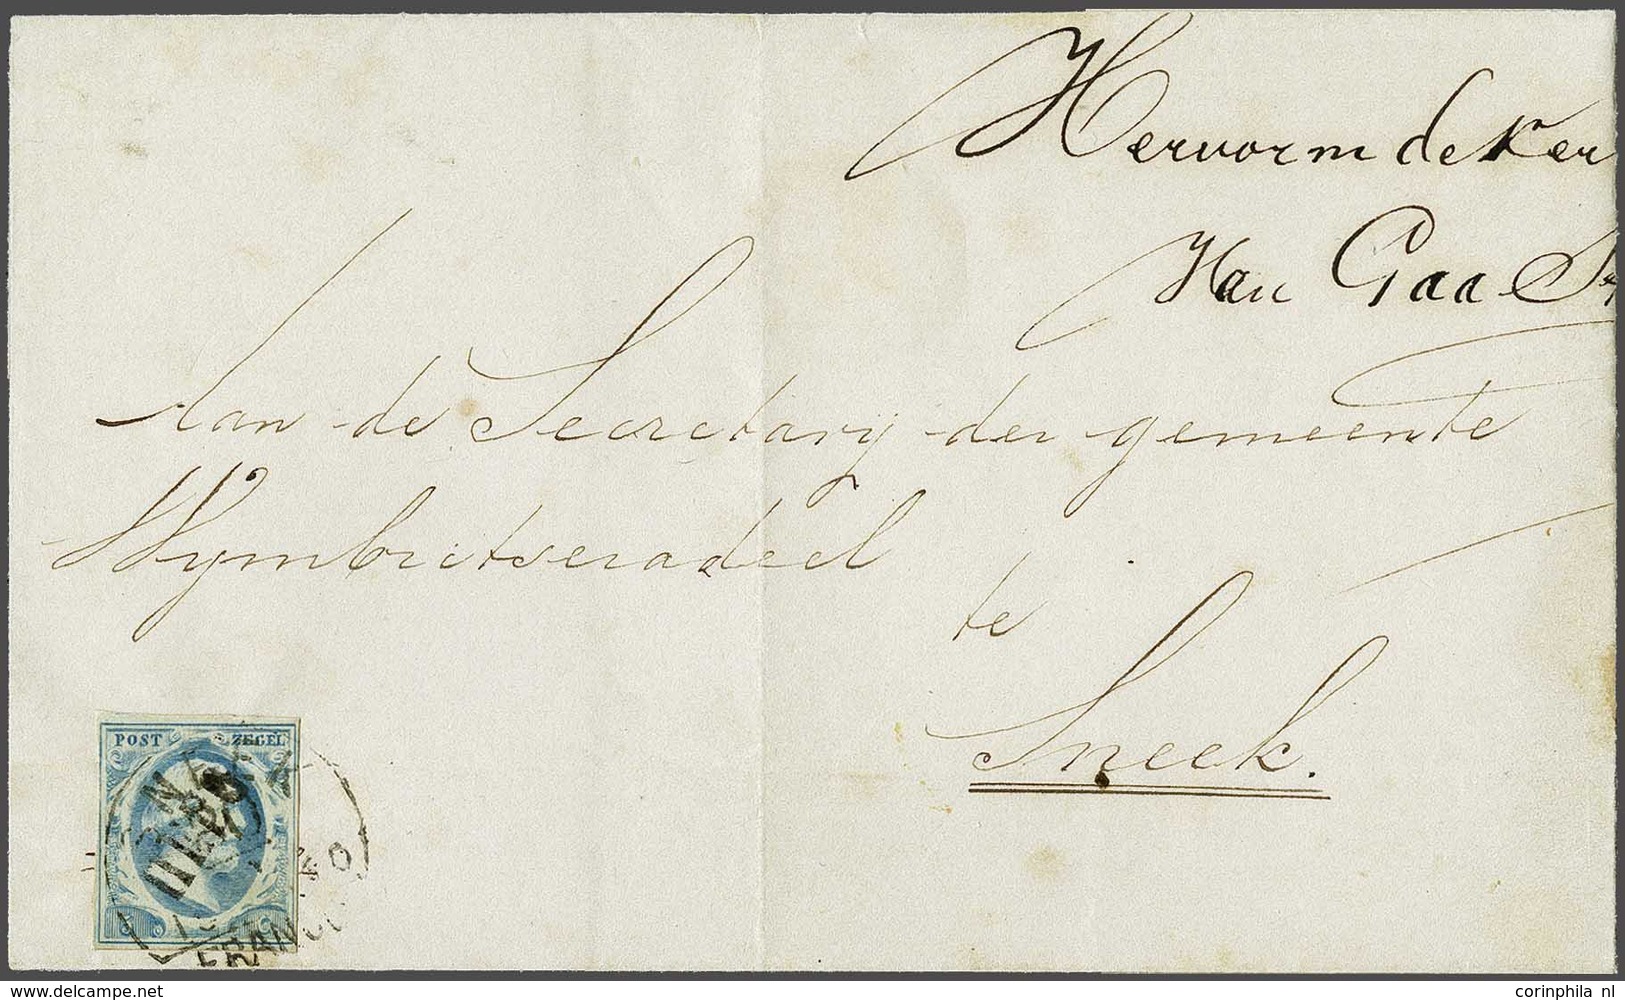 Hervormde Ker
Van Gaast
Aan de Secretary der gemeente
Wymbritseradeel
te
Sneek.
POST ZEGEL
FRANCO
© www.delcampe.net
corinphila nl